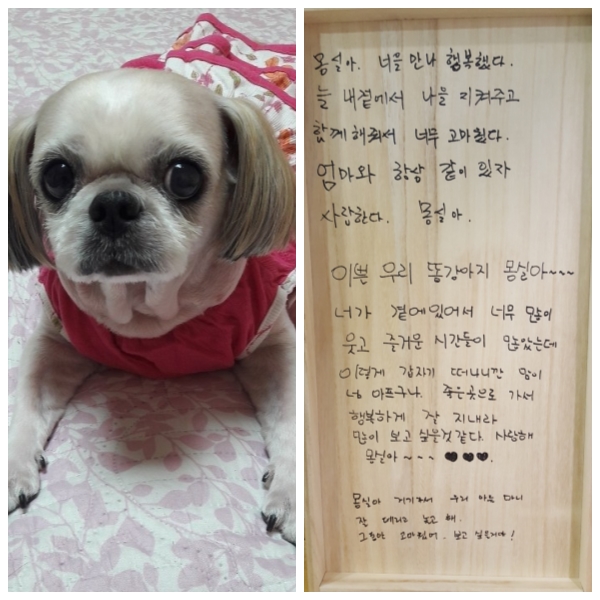 몽실아. 너를 만나 행복했다.
늘 내곁에서 나를 지켜주고
함께 해줘서 너무 고마웠다.
엄마와 항상 같이 있자
사랑한다. 몽실아.
이쁜 우리 똥강아지 몽실아~~~
너가 곁에있어서 너무 많이
웃고 즐거운 시간들이 많았는데
이렇게 갑자기 떠나니깐 맘이
넘 아프구나. 좋은곳으로 가서
행복하게 잘 지내라
많이 보고 싶을것같다. 사랑해
몽실아~~~ ♥♥♥.
몽실아 거기가서 우리 아프
잘 데리고 놀고 해.
그동안 고마웠어. 보고 싶을거야!